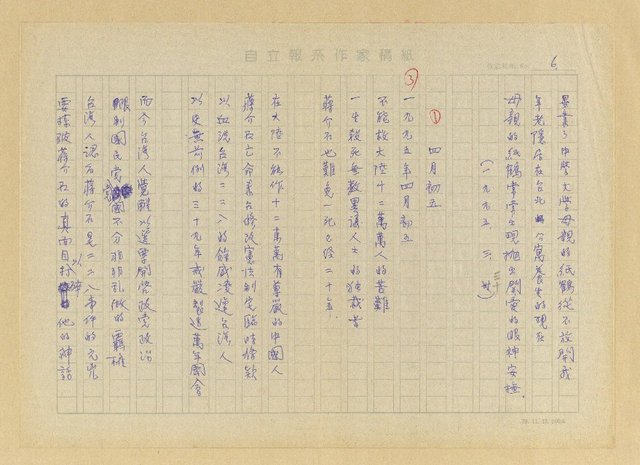 自立報系作家稿紙
6.
畢業了中學大學母親的紙鶴從不放開我
年老隱居在台北公寓養生的現在
母親的紙鶴常常出現拋出關愛的眼神安撫
（一九九五、三、
③
① 四月初五
一九九五年四月初五
不能救大陸十二萬萬人的苦難
一生殺死無數異議人士的獨裁者
蔣介石也難免一死已經二十年
在大陸不能作十二萬萬有尊嚴的中國人
蔣介石亡命來台修改憲法制定臨時條款
以血洗台灣二二八的餘威凌遲台灣人
以史無前例的三十九年戒嚴製造萬年國會
而今台灣人覺醒以選票開啓政黨政治
國民黨國不分非非亂做的霸權
台灣人認為蔣介石是二二八事件的元兇
要揉破蔣介石的真面目以打碎他的神話
79.11.15.200本